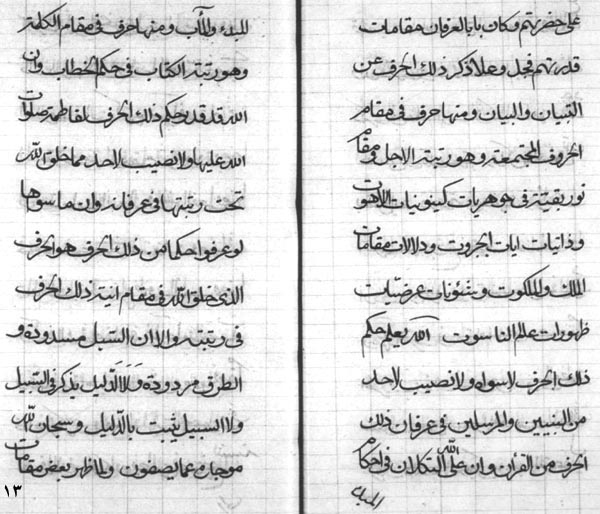 على حضرتهم وكان باب العرفان مقامات
قدرتهم فجل وعلا ذكر ذلك الحرف عن
التبيان والبيان ومنها حرف في مقام
الحروف المجتمعة وهو رتبة الاجل ومقام
نور بقيته في جوهريات كينونيات اللاهوت
وذاتيات ايات الجبروت ودلالات مقامات
الملك والملكوت وشئونات عرضيّات
ظهورات عالم الناسوت الله يعلم حكم
ذلك الحرف لاسواه ولا نصيب لاحد
من النبيين والمرسلين في عرفان ذلك
الحرف من القرآن وان على الله التكلان في احكام
للبدء والمآب ومنها حرف في مقام الكلمة
وهو رتبة الكتاب في حكم الخطاب وان
الله قد قدر حكم ذلك الحرف لفاطمة صلوات
الله عليها ولا نصيب لاحد مما خلق الله
تحت رتبتها في عرفانه وان ما سواها
لو عرفوا حكما من ذلك الحرف هو الحرف
الذي خلق الله في مقام انية ذلك الحرف
في رتبته والا ان السبل مسدودة و
الطرق مردودة ولا الدليل يذكر في السبيل
ولا السبيل يثبت بالدّليل وسبحان الله
موجده عما يصفون ولما ظهر بعض مقامات
١٣